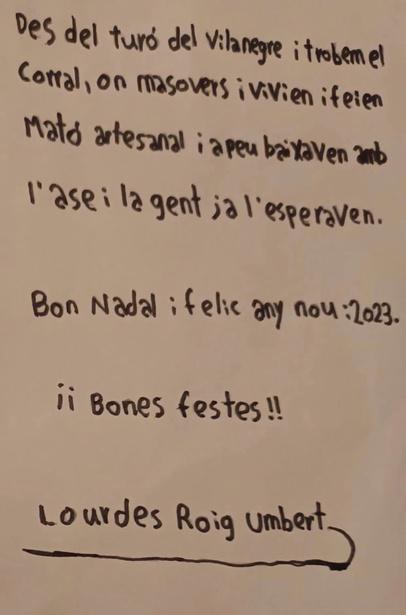 Des del turó del Vilanegre i trobem el
Corral, on masovers i vivien i feien
Mató artesanal i a peu baixaven amb
l'ase i la gent ja l'esperaven.
Bon Nadal i felic any nou:2023.
¡¡ Bones festes!!
Lourdes Roig Umbert